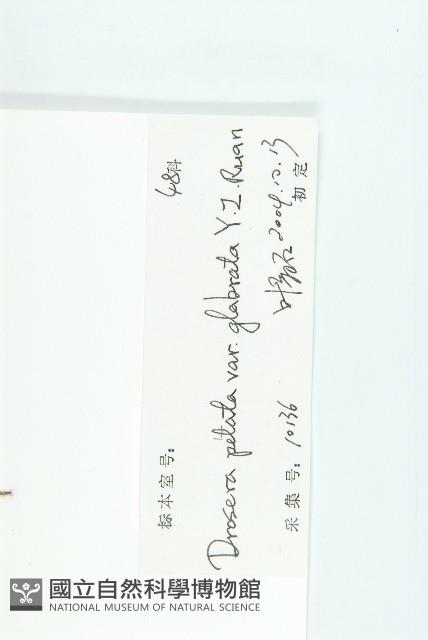 标本室号: 48科
Drosera peltata var. glabrata Y.Z. Ruan
采集号: 10136 2004.10.13
初定
國立自然科學博物館
NATIONAL MUSEUM OF NATURAL SCIENCE